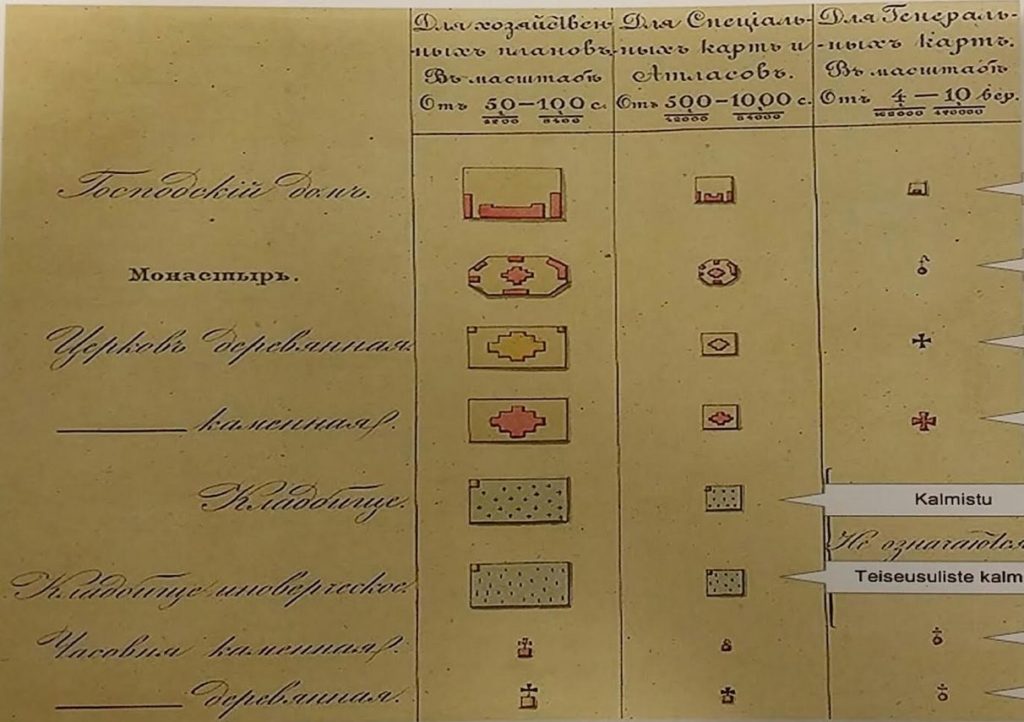 Для хозяйствен-
ныхъ плановъ.
Въ масштабѣ
Отъ 50—100 с.
4200 8400
Для Спеціаль-
ныхъ картъ и
Атласовъ.
Отъ 500—1000 с.
42000 84000
Для Генераль-
-ныхъ картъ.
Въ масштабѣ
Отъ 4 — 10 вер.
168000 420000
Господскій домъ.
Монастырь.
Церковь деревянная.
каменная.
Кладбище.
Kalmistu
Не означаются
Кладбище иноверческое.
Teiseusuliste kalm
Часовня каменная.
деревянная.